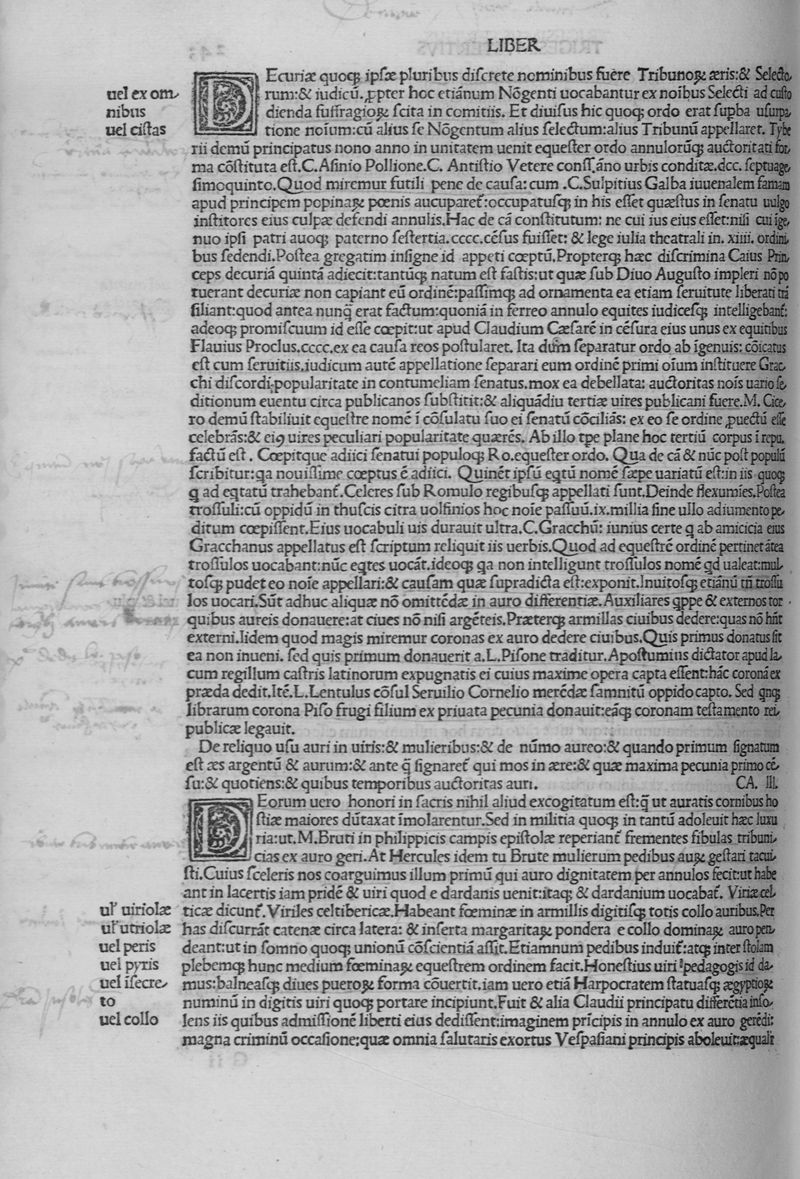 LIBER
uel ex om/
nibus
uel cistas
DEcuriæ quoqꝫ ipsæ pluribus discrete nominibus fuere Tribunoꝝ æris:& Selecto/
rum:& iudicū.ꝓpter hoc etiānum Nōgenti uocabantur ex noībus Selecti ad custo
dienda suffragioꝝ scita in comitiis. Et diuisus hic quoqꝫ ordo erat supba usurpa/
tione noīum:cū alius se Nōgentum alius selectum:alius Tribunū appellaret. Tybe
rii demū principatus nono anno in unitatem uenit equester ordo annulorūqꝫ auctoritati for/
ma cōstituta est.C.Asinio Pollione.C. Antistio Vetere conss.āno urbis conditæ.dcc. septuage/
simoquinto.Quod miremur futili pene de causa: cum .C.Sulpitius Galba iuuenalem famam
apud principem popinaꝝ pœnis aucuparet̄:occupatusqꝫ in his esset quæstus in senatu uulgo
institores eius culpæ defendi annulis.Hac de cā constitutum: ne cui ius eius esset:nisi cui īge/
nuo ipsi patri auoqꝫ paterno sestertia.cccc.cēsus fuisset: & lege iulia theatrali in. xiiii. ordini/
bus sedendi.Postea gregatim insigne id appeti cœptū.Propterqꝫ hæc discrimina Caius Prin/
ceps decuriā quintā adiecit:tantūqꝫ natum est fastis:ut quæ sub Diuo Augusto impleri nō po
tuerant decuriæ non capiant eū ordinē:passimqꝫ ad ornamenta ea etiam seruitute liberati trā
siliant:quod antea nunq̄ erat factum:quoniā in ferreo annulo equites iudicesqꝫ intelligebant̄:
adeoqꝫ promiscuum id esse cœpit:ut apud Claudium Cæsarē in cēsura eius unus ex equitibus
Flauius Proclus.cccc.ex ea causa reos postularet. Ita dum separatur ordo ab īgenuis: cōicatus
est cum seruitiis.iudicum autē appellatione separari eum ordinē primi oīum instituere Grac/
chi discordi popularitate in contumeliam senatus.mox ea debellata: auctoritas noīs uario se/
ditionum euentu circa publicanos substitit:& aliquādiu tertiæ uires publicani fuere.M. Cice/
ro demū stabiliuit equestre nomē ī cōsulatu suo ei senatū cōciliās: ex eo se ordine ꝓuectū esse
celebrās:& eiꝰ uires peculiari popularitate quærēs. Ab illo tpe plane hoc tertiū corpus ī repu.
factū est . Cœpitque adiici senatui populoqꝫ Ro.equester ordo. Qua de cā & nūc post populū
scribitur:qa nouissime cœptus ē adiici. Quinēt ipsū eqtū nomē sæpe uariatū est:in iis quoqꝫ
q ad eqtatū trahebant̄.Celeres sub Romulo regibusqꝫ appellati sunt.Deinde flexumies.Postea
trossuli:cū oppidū in thuscis citra uolsinios hoc noīe passuū.ix.millia sine ullo adiumento pe/
ditum cœpissent.Eius uocabuli uis durauit ultra.C.Gracchū: iunius certe q ab amicicia eius
Gracchanus appellatus est scriptum reliquit iis uerbis.Quod ad equestrē ordinē pertinet ātea
trossulos uocabant:nūc eqtes uocāt.ideoqꝫ qa non intelligunt trossulos nomē qd ualeat:mul/
tosqꝫ pudet eo noīe appellari:& causam quæ supradicta est:exponit.Inuitosqꝫ etiānū tn̄ trossu
los uocari.Sūt adhuc aliquæ nō omittēdæ in auro differentiæ.Auxiliares qppe & externos tor
quibus aureis donauere:at ciues nō nisi argēteis.Præterqꝫ armillas ciuibus dedere:quas nō hn̄t
externi.Iidem quod magis miremur coronas ex auro dedere ciuibus.Quis primus donatus sit
ea non inueni. sed quis primum donauerit a.L.Pisone traditur.Apostumius dictator apud la/
cum regillum castris latinorum expugnatis ei cuius maxime opera capta essent:hāc coronā ex
præda dedit.Itē.L.Lentulus cōsul Seruilio Cornelio merēdæ samnitū oppido capto. Sed qnqꝫ
librarum corona Piso frugi filium ex priuata pecunia donauit:eāqꝫ coronam testamento rei/
publicæ legauit.
De reliquo usu auri in uiris:& mulieribus:& de nūmo aureo:& quando primum signatum
est æs argentū & aurum:& ante q̄ signaret̄ qui mos in ære:& quæ maxima pecunia primo cē/
su:& quotiens:& quibus temporibus auctoritas auri. CA. III.
DEorum uero honori in sacris nihil aliud excogitatum est:q̄ ut auratis cornibus ho
stiæ maiores dūtaxat īmolarentur.Sed in militia quoqꝫ in tantū adoleuit hæc luxu
ria:ut.M.Bruti in philippicis campis epistolæ reperiant̄ frementes fibulas tribuni/
cias ex auro geri.At Hercules idem tu Brute mulierum pedibus auꝝ gestari tacui/
sti.Cuius sceleris nos coarguimus illum primū qui auro dignitatem per annulos fecit:ut habe
ant in lacertis iam pridē & uiri quod e dardanis uenit:itaqꝫ & dardanium uocabat̄. Viriæ cel/
ul' uiriolæ
ticæ dicunt̄.Viriles celtibericæ.Habeant fœminæ in armillis digitisqꝫ totis collo auribus.Per
ul' utriolæ
has discurrāt catenæ circa latera: & inserta margaritaꝝ pondera e collo dominaꝝ auro pen/
uel peris
deant:ut in somno quoqꝫ unionū cōscientiā assit.Etiamnum pedibus induit̄:atqꝫ inter stolam
uel pyris
plebemqꝫ hunc medium fœminaꝝ equestrem ordinem facit.Honestius uiri pedagogis id da/
uel īsecre/
mus:balneasqꝫ diues pueroꝝ forma cōuertit.iam uero etiā Harpocratem statuasqꝫ ægyptioꝝ
to
numinū in digitis uiri quoqꝫ portare incipiunt.Fuit & alia Claudii principatu differētia inso/
uel collo
lens iis quibus admissionē liberti eius dedissent:imaginem prīcipis in annulo ex auro gerēdi:
magna criminū occasione:quæ omnia salutaris exortus Vespasiani principis aboleuit:æqualit̄